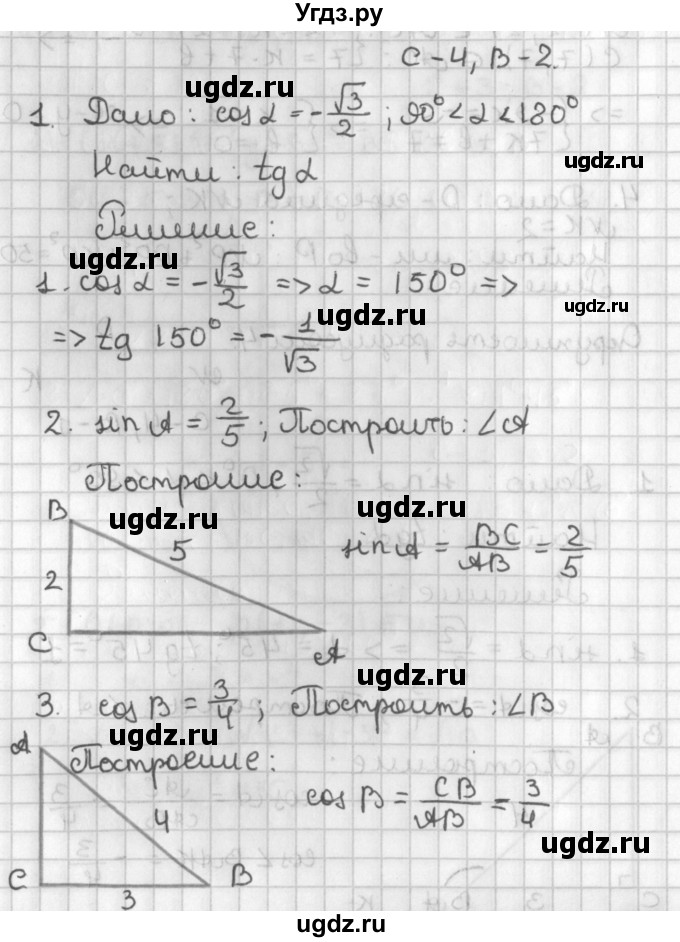 Угдз.ру
С-4, В-2.
ugdz.ru ugdz.ru
1. Дано: cos α = -√3/2; 90° < α < 180°
Найти: tg α
Решение:
ugdz.ru
1. cos α = -√3/2 => α = 150° =>
ugdz.ru
=> tg 150° = -1/√3
2. sin A = 2/5; Построить: ∠A
Построение:
B
ugdz.ru ugdz.ru
5
sin A = BC/AB = 2/5
2
C
A
ugdz.ru
3. cos B = 3/4; Построить: ∠B
ugdz.ru
A Построение:
4
cos B = CB/AB = 3/4
ugdz.ru
C B
3
ugdz.ru